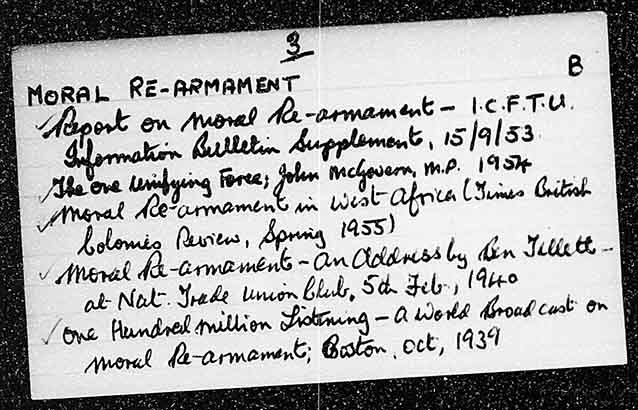 3
B
MORAL RE-ARMAMENT
✓Report on Moral Re-armament - I.C.F.T.U.
Information Bulletin Supplement, 15/9/53.
✓The one Unifying Force; John McGovern, M.P. 1954
✓Moral Re-armament in West Africa (Times British
Colonies Review, Spring 1955)
✓Moral Re-armament - an Address by Ben Tillett -
at Nat. Trade Union Club, 5th Feb., 1940
✓One Hundred Million Listening - a World Broadcast on
Moral Re-armament; Boston, Oct, 1939